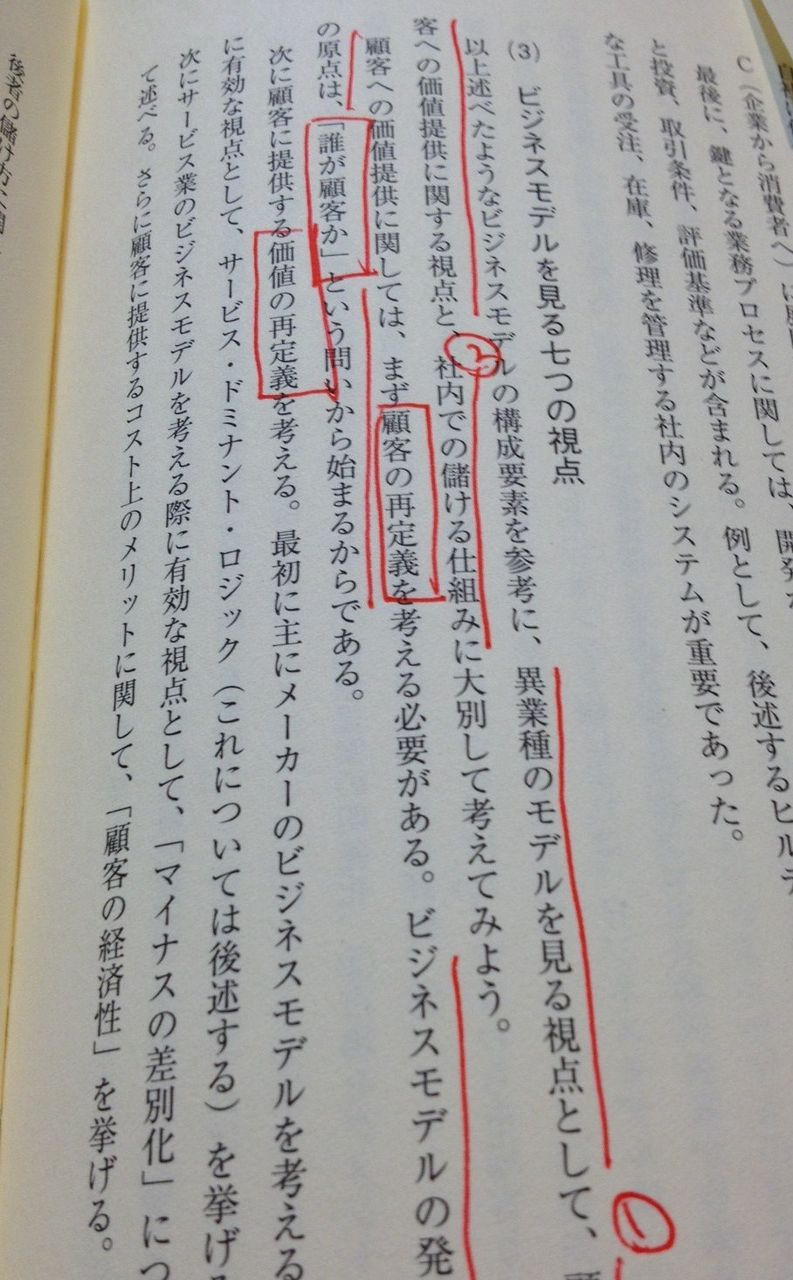 C（企業から消費者へ）に
最後に、鍵となる業務プロセスに関しては、開発
と投資、取引条件、評価基準などが含まれる。例として、後述するヒルテ
な工具の受注、在庫、修理を管理する社内のシステムが重要であった。
(3) ビジネスモデルを見る七つの視点
以上述べたようなビジネスモデルの構成要素を参考に、異業種のモデルを見る視点として、顧
客への価値提供に関する視点と、社内での儲ける仕組みに大別して考えてみよう。
顧客への価値提供に関しては、まず顧客の再定義を考える必要がある。ビジネスモデルの発
の原点は、「誰が顧客か」という問いから始まるからである。
次に顧客に提供する価値の再定義を考える。最初に主にメーカーのビジネスモデルを考える
に有効な視点として、サービス・ドミナント・ロジック（これについては後述する）を挙げ
次にサービス業のビジネスモデルを考える際に有効な視点として、「マイナスの差別化」につ
て述べる。さらに顧客に提供するコスト上のメリットに関して、「顧客の経済性」を挙げる。
1
2